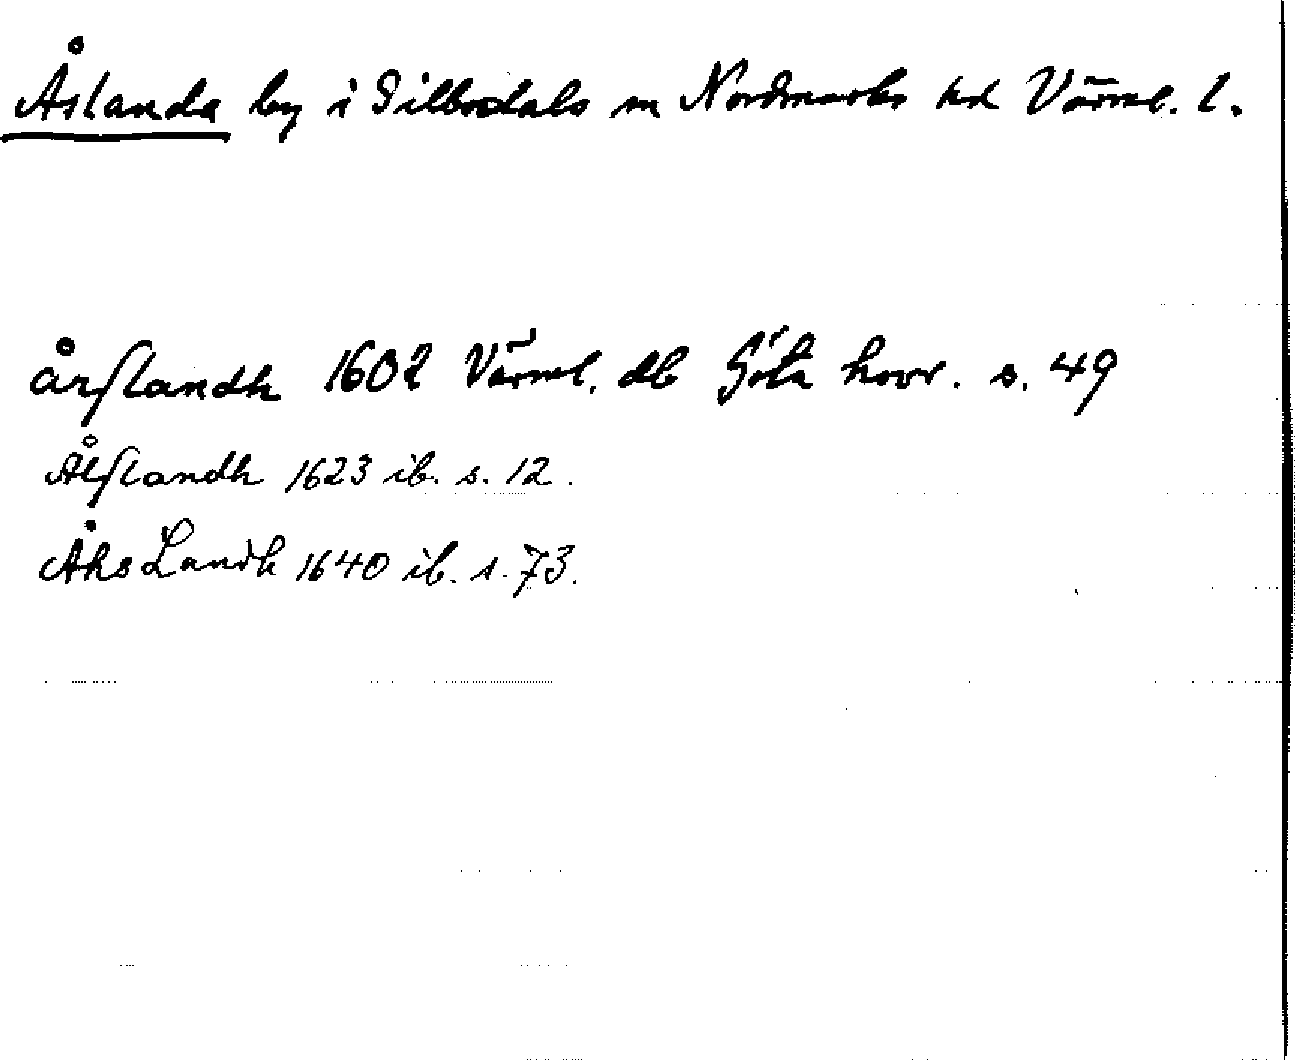 Åslanda by i Sillbodals sn Nordmarks hd Värml. l.
årslandh 1602 Värml. db Göta hovr. s. 49
Ålslandh 1623 ib. s. 12.
Åhs Landh 1640 ib. s. 73.